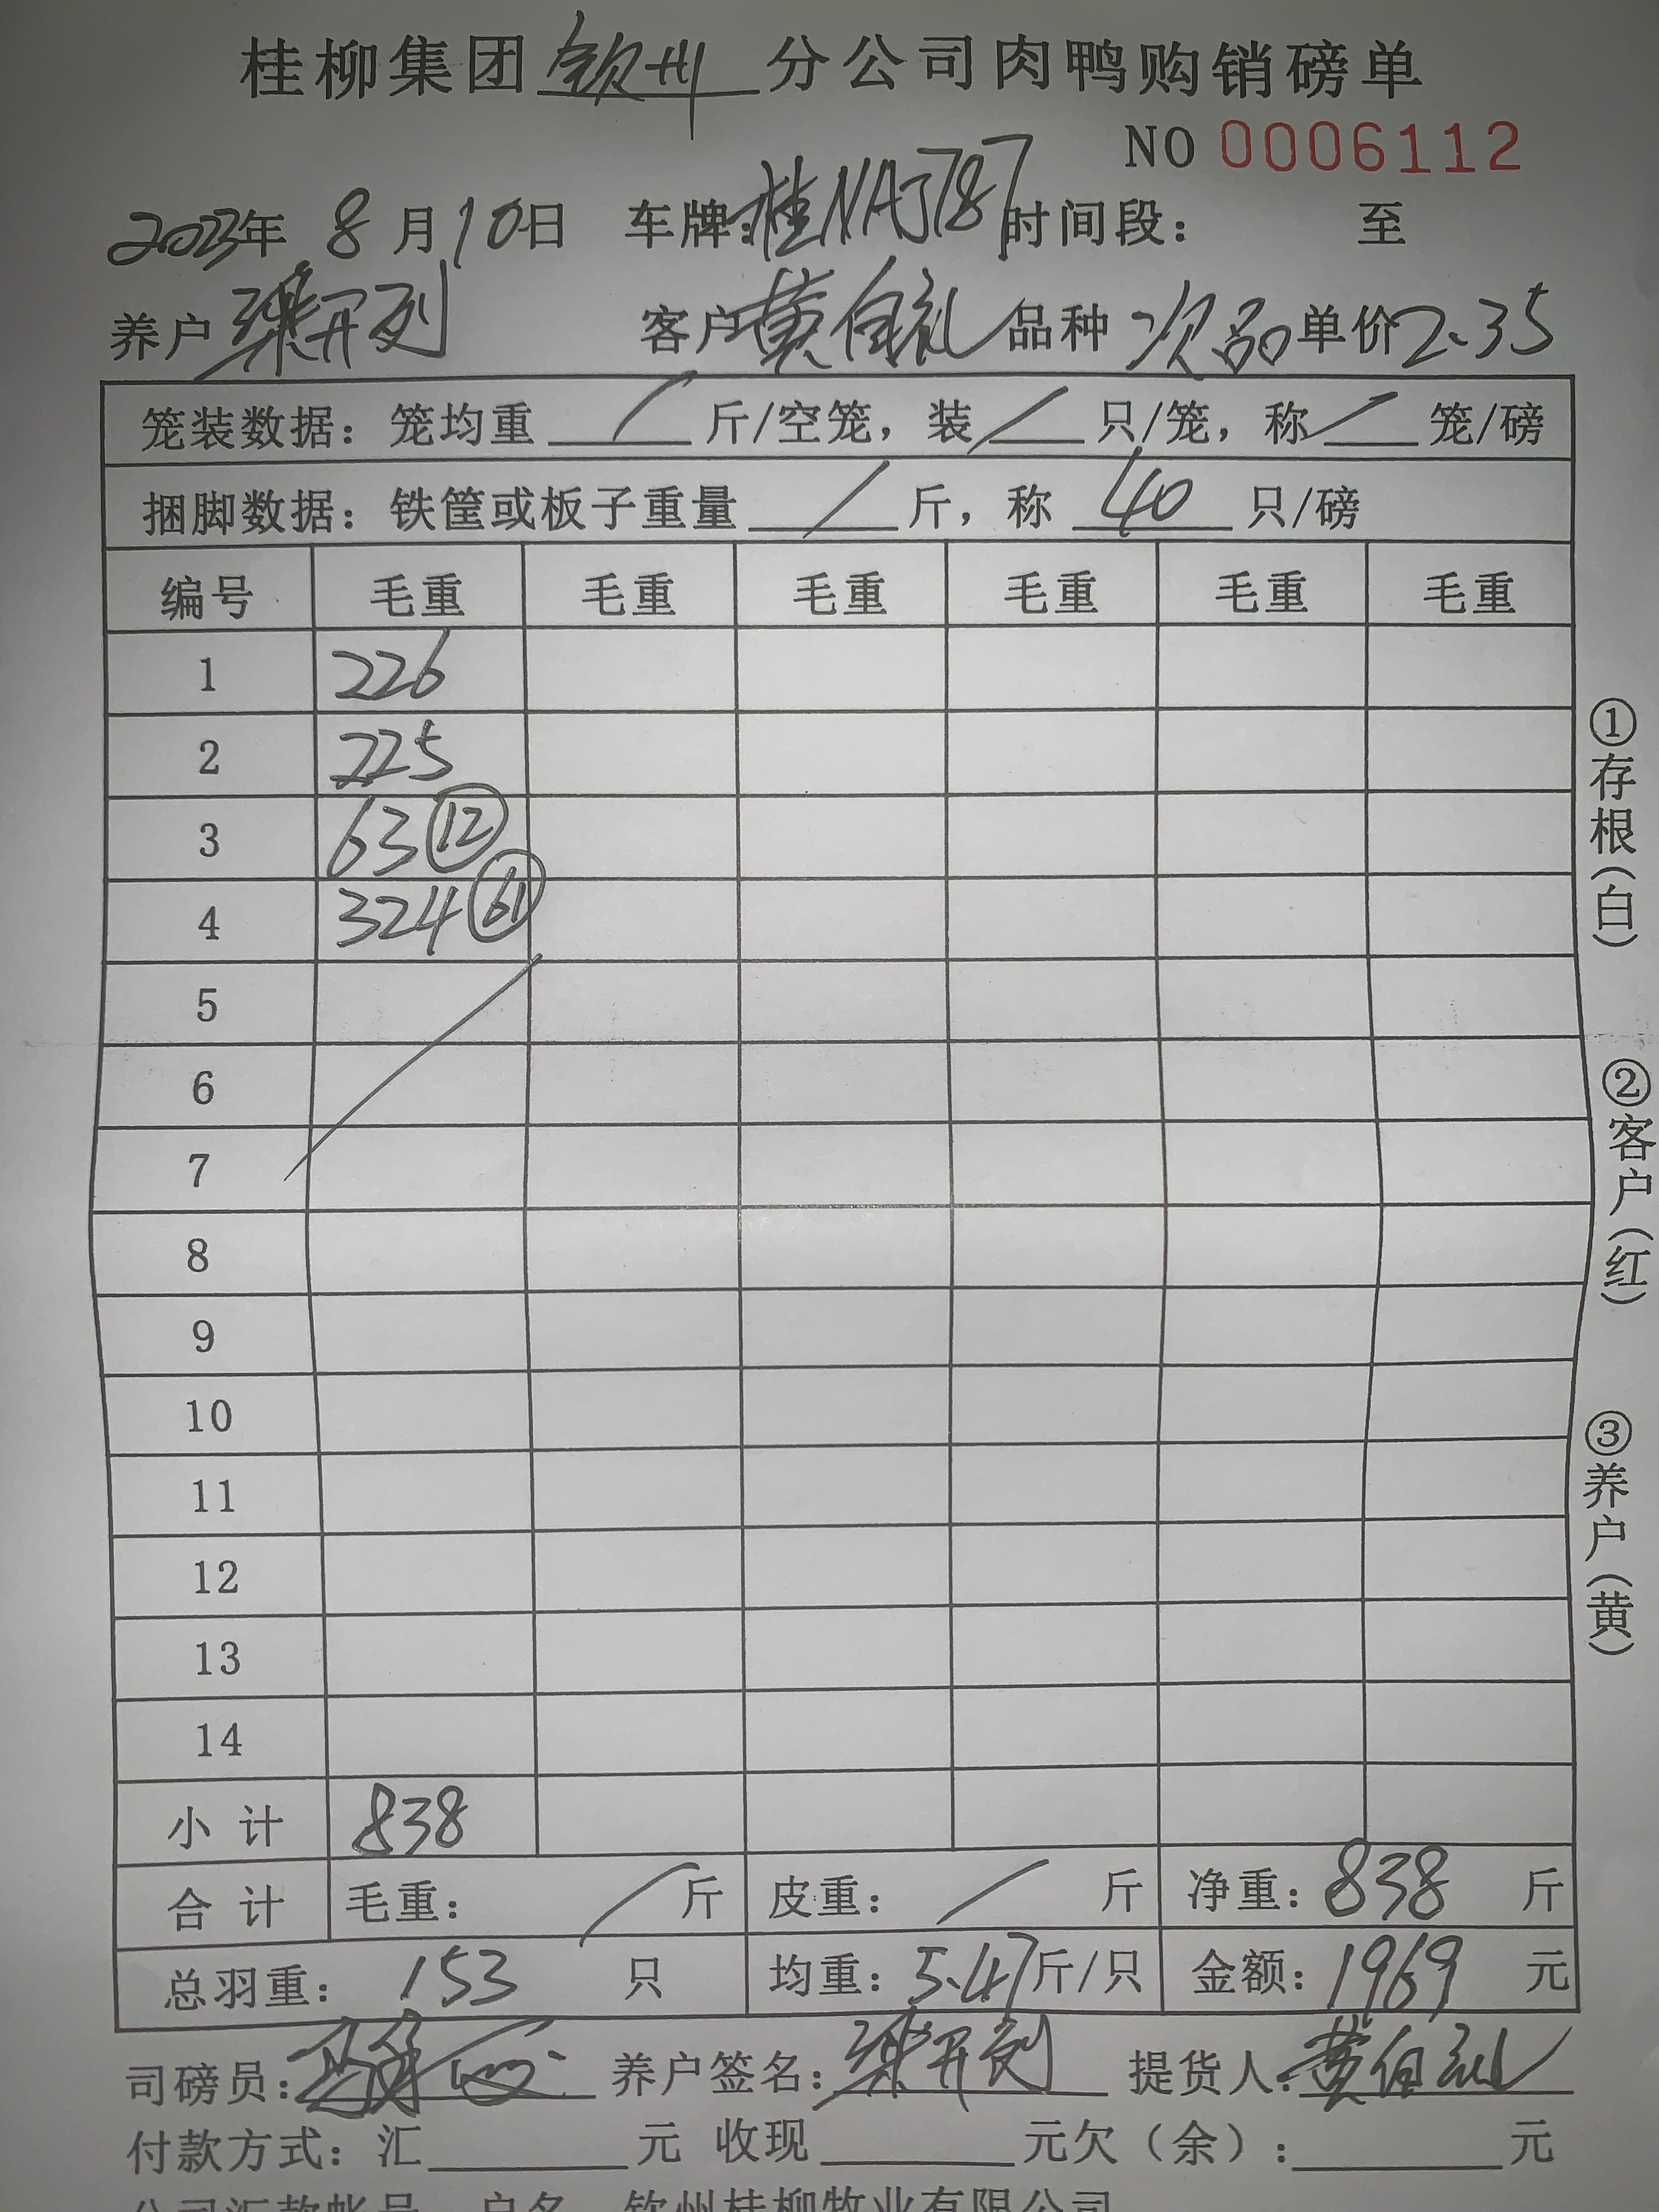 桂柳集团钦州分公司肉鸭购销磅单
NO 0006112
2023年 8月10日 车牌:桂NAJ787 时间段: 至
养户 梁开列 客户 黄伯礼 品种 次品 单价2.35
笼装数据:笼均重 / 斤/空笼,装 / 只/笼,称 / 笼/磅
捆脚数据:铁筐或板子重量 / 斤,称 40 只/磅
编号 毛重 毛重 毛重 毛重 毛重 毛重
1 226
2 225
3 63 ⑫
4 324 (61)
5
6
7
8
9
10
11
12
13
14
小计 838
合计 毛重: / 斤 皮重: / 斤 净重:838 斤
总羽重: 153 只 均重:5.47斤/只 金额:1969 元
司磅员: 养户签名:梁开列 提货人:黄伯礼
付款方式:汇 元 收现 元欠(余): 元
公司汇款帐号 户名 钦州桂柳牧业有限公司
①存根(白)
②客户(红)
③养户(黄)